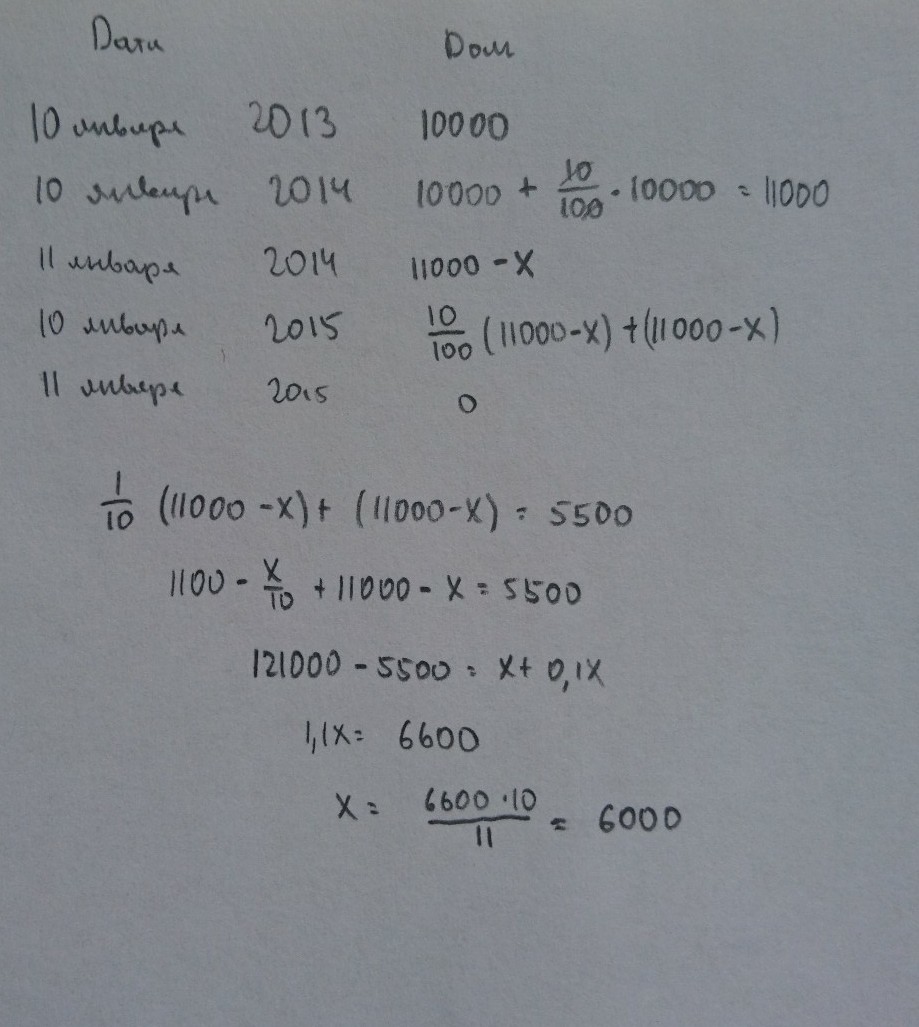 Дата Долг
10 января 2013 10000
10 января 2014 10000 + 10/100 · 10000 = 11000
11 января 2014 11000 - x
10 января 2015 10/100 (11000-x) + (11000-x)
11 января 2015 0
1/10 (11000 - x) + (11000-x) = 5500
1100 - x/10 + 11000 - x = 5500
121000 - 5500 = x + 0,1x
1,1x = 6600
x = 6600 · 10/11 = 6000